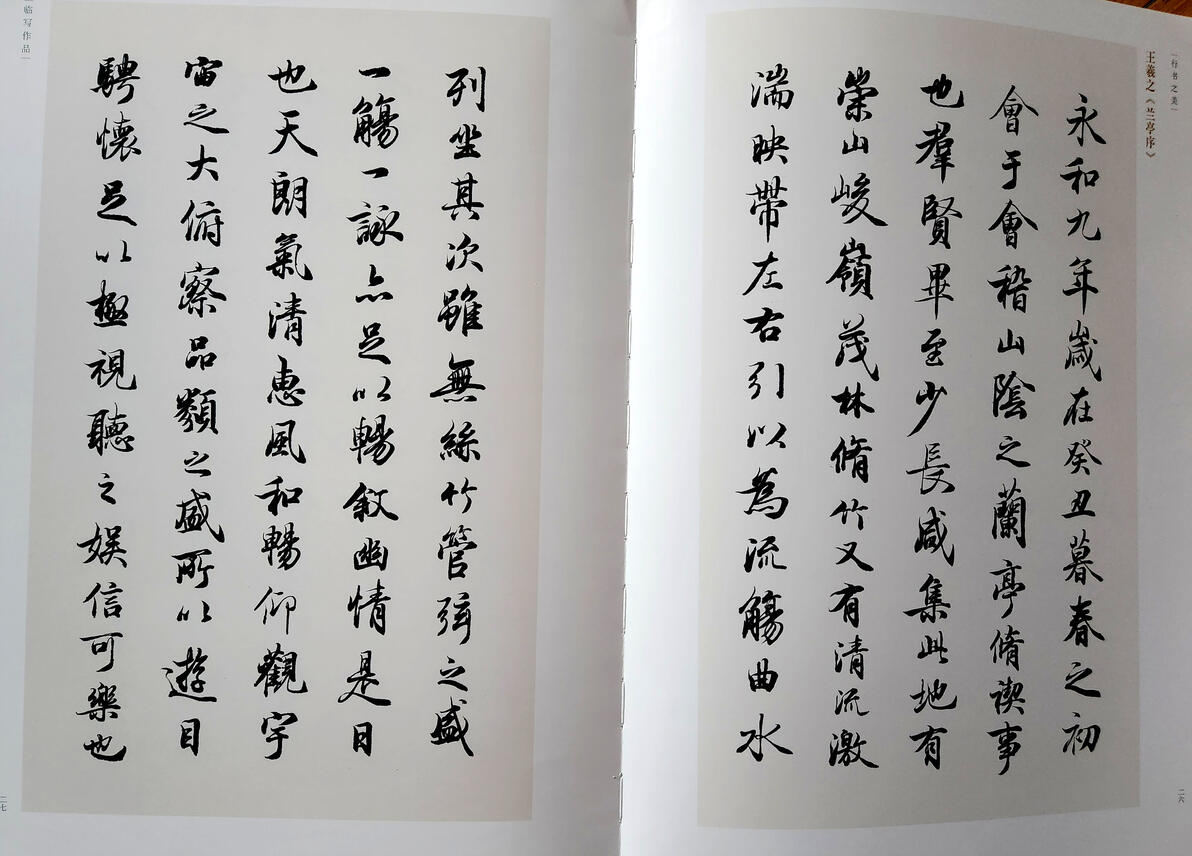 行书之美
王羲之《兰亭序》
永和九年歲在癸丑暮春之初
會于會稽山陰之蘭亭脩禊事
也羣賢畢至少長咸集此地有
崇山峻嶺茂林脩竹又有清流激
湍映帶左右引以為流觴曲水
二六
列坐其次雖無絲竹管弦之盛
一觴一詠亦足以暢敘幽情是日
也天朗氣清惠風和暢仰觀宇
宙之大俯察品類之盛所以遊目
騁懷足以極視聽之娱信可樂也
临写作品
二七